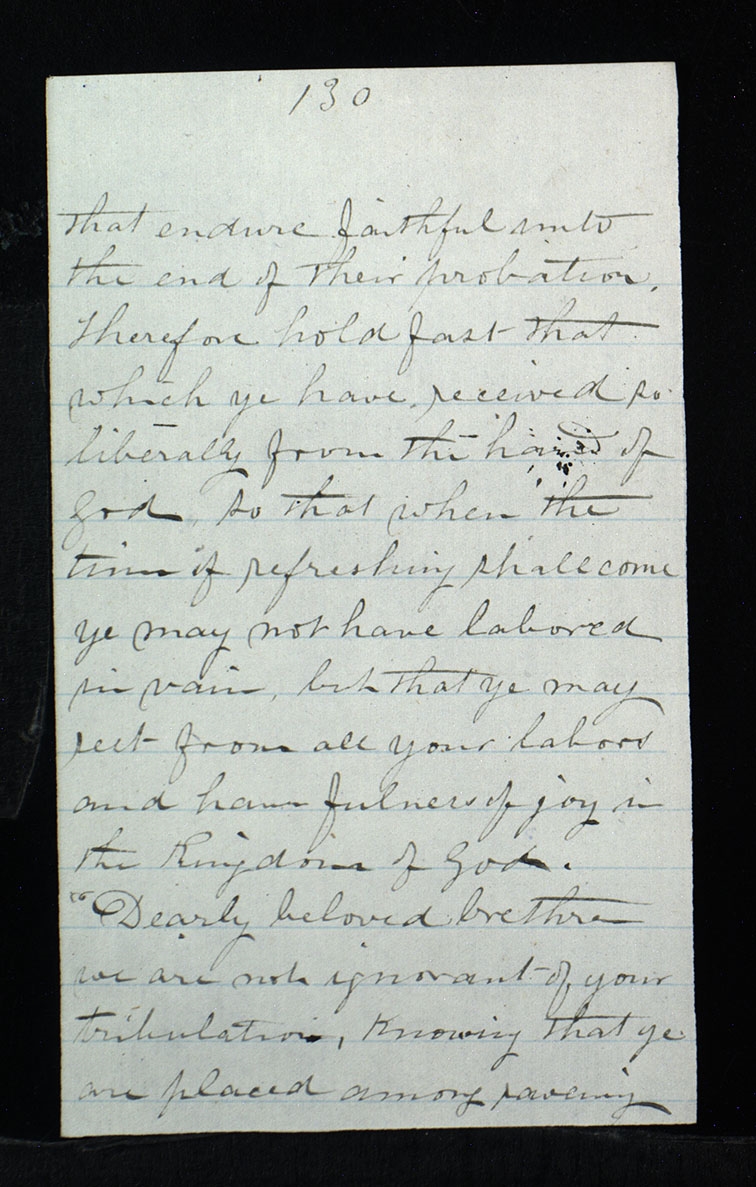 130
that endure faithful unto
the end of their probation.
Therefore hold fast that
which ye have received so
liberally from the hand of
God, so that when the
time of refreshing shall come
ye may not have labored
in vain, but that ye may
rest from all your labors
and have fulness of joy in
the Kingdom of God.
"Dearly beloved brethren
we are not ignorant of your
tribulation, Knowing that ye
are placed among ravening